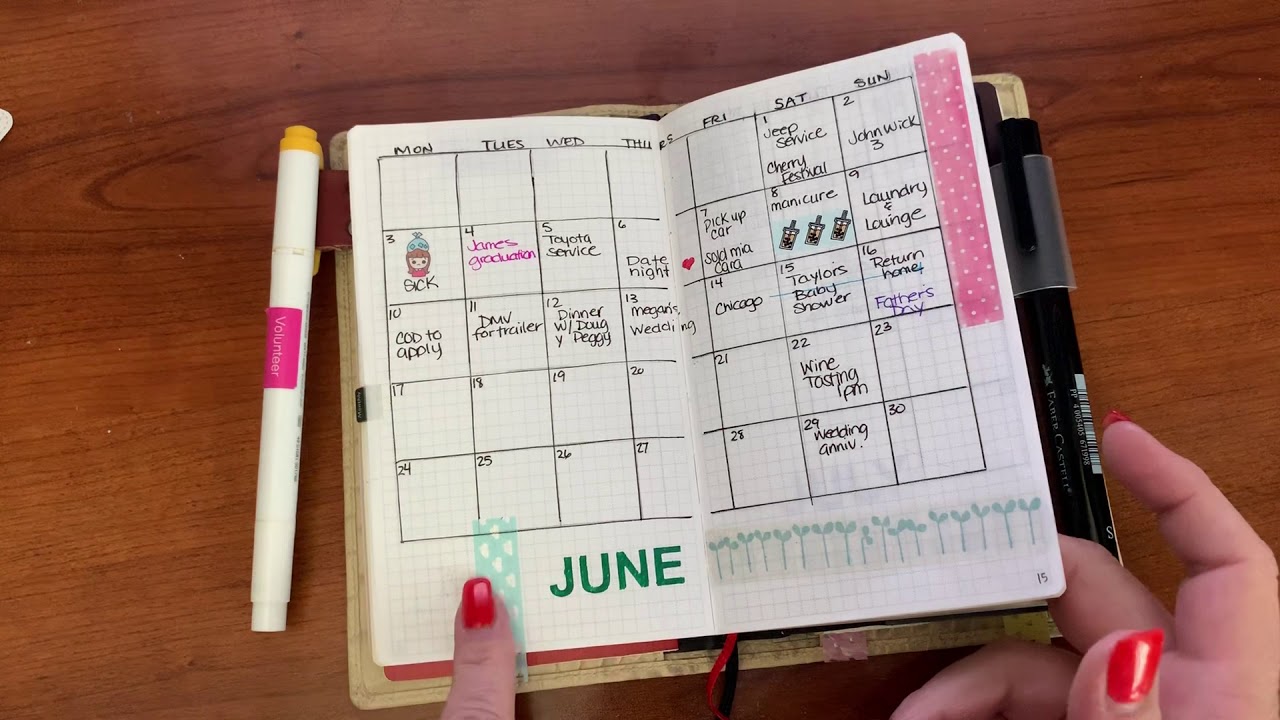 MON TUES WED THURS FRI SAT SUN
1
Jeep
Service
Cherry
Festival
2
John Wick
3
3
SICK
4
James
graduation
5
Toyota
service
6
Date
night
7
Pick up
car
Sold mia
cara
8
manicure
9
Laundry
&
Lounge
10
COD to
apply
11
DMV
for trailer
12
Dinner
w/Doug
y Peggy
13
megan's
Wedding
14
Chicago
15
Taylor's
Baby
Shower
16
Return
home
Father's
Day
17
18
19
20
21
22
Wine
Tasting
1pm
23
24
25
26
27
28
29
Wedding
anniv.
30
JUNE
15
Volunteer
FABER CASTELL
PP 4 005405 671598
S